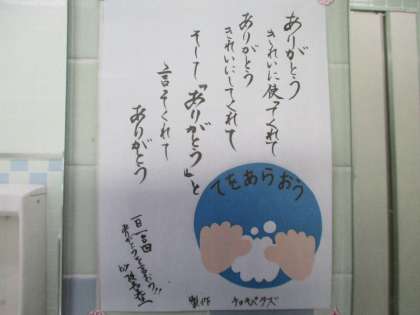 ありがとう
きれいに使ってくれて
ありがとう
きれいにしてくれて
そして『ありがとう』と
言ってくれて
ありがとう
てをあらおう
一日一言
ありがとうを言おう!!
製作